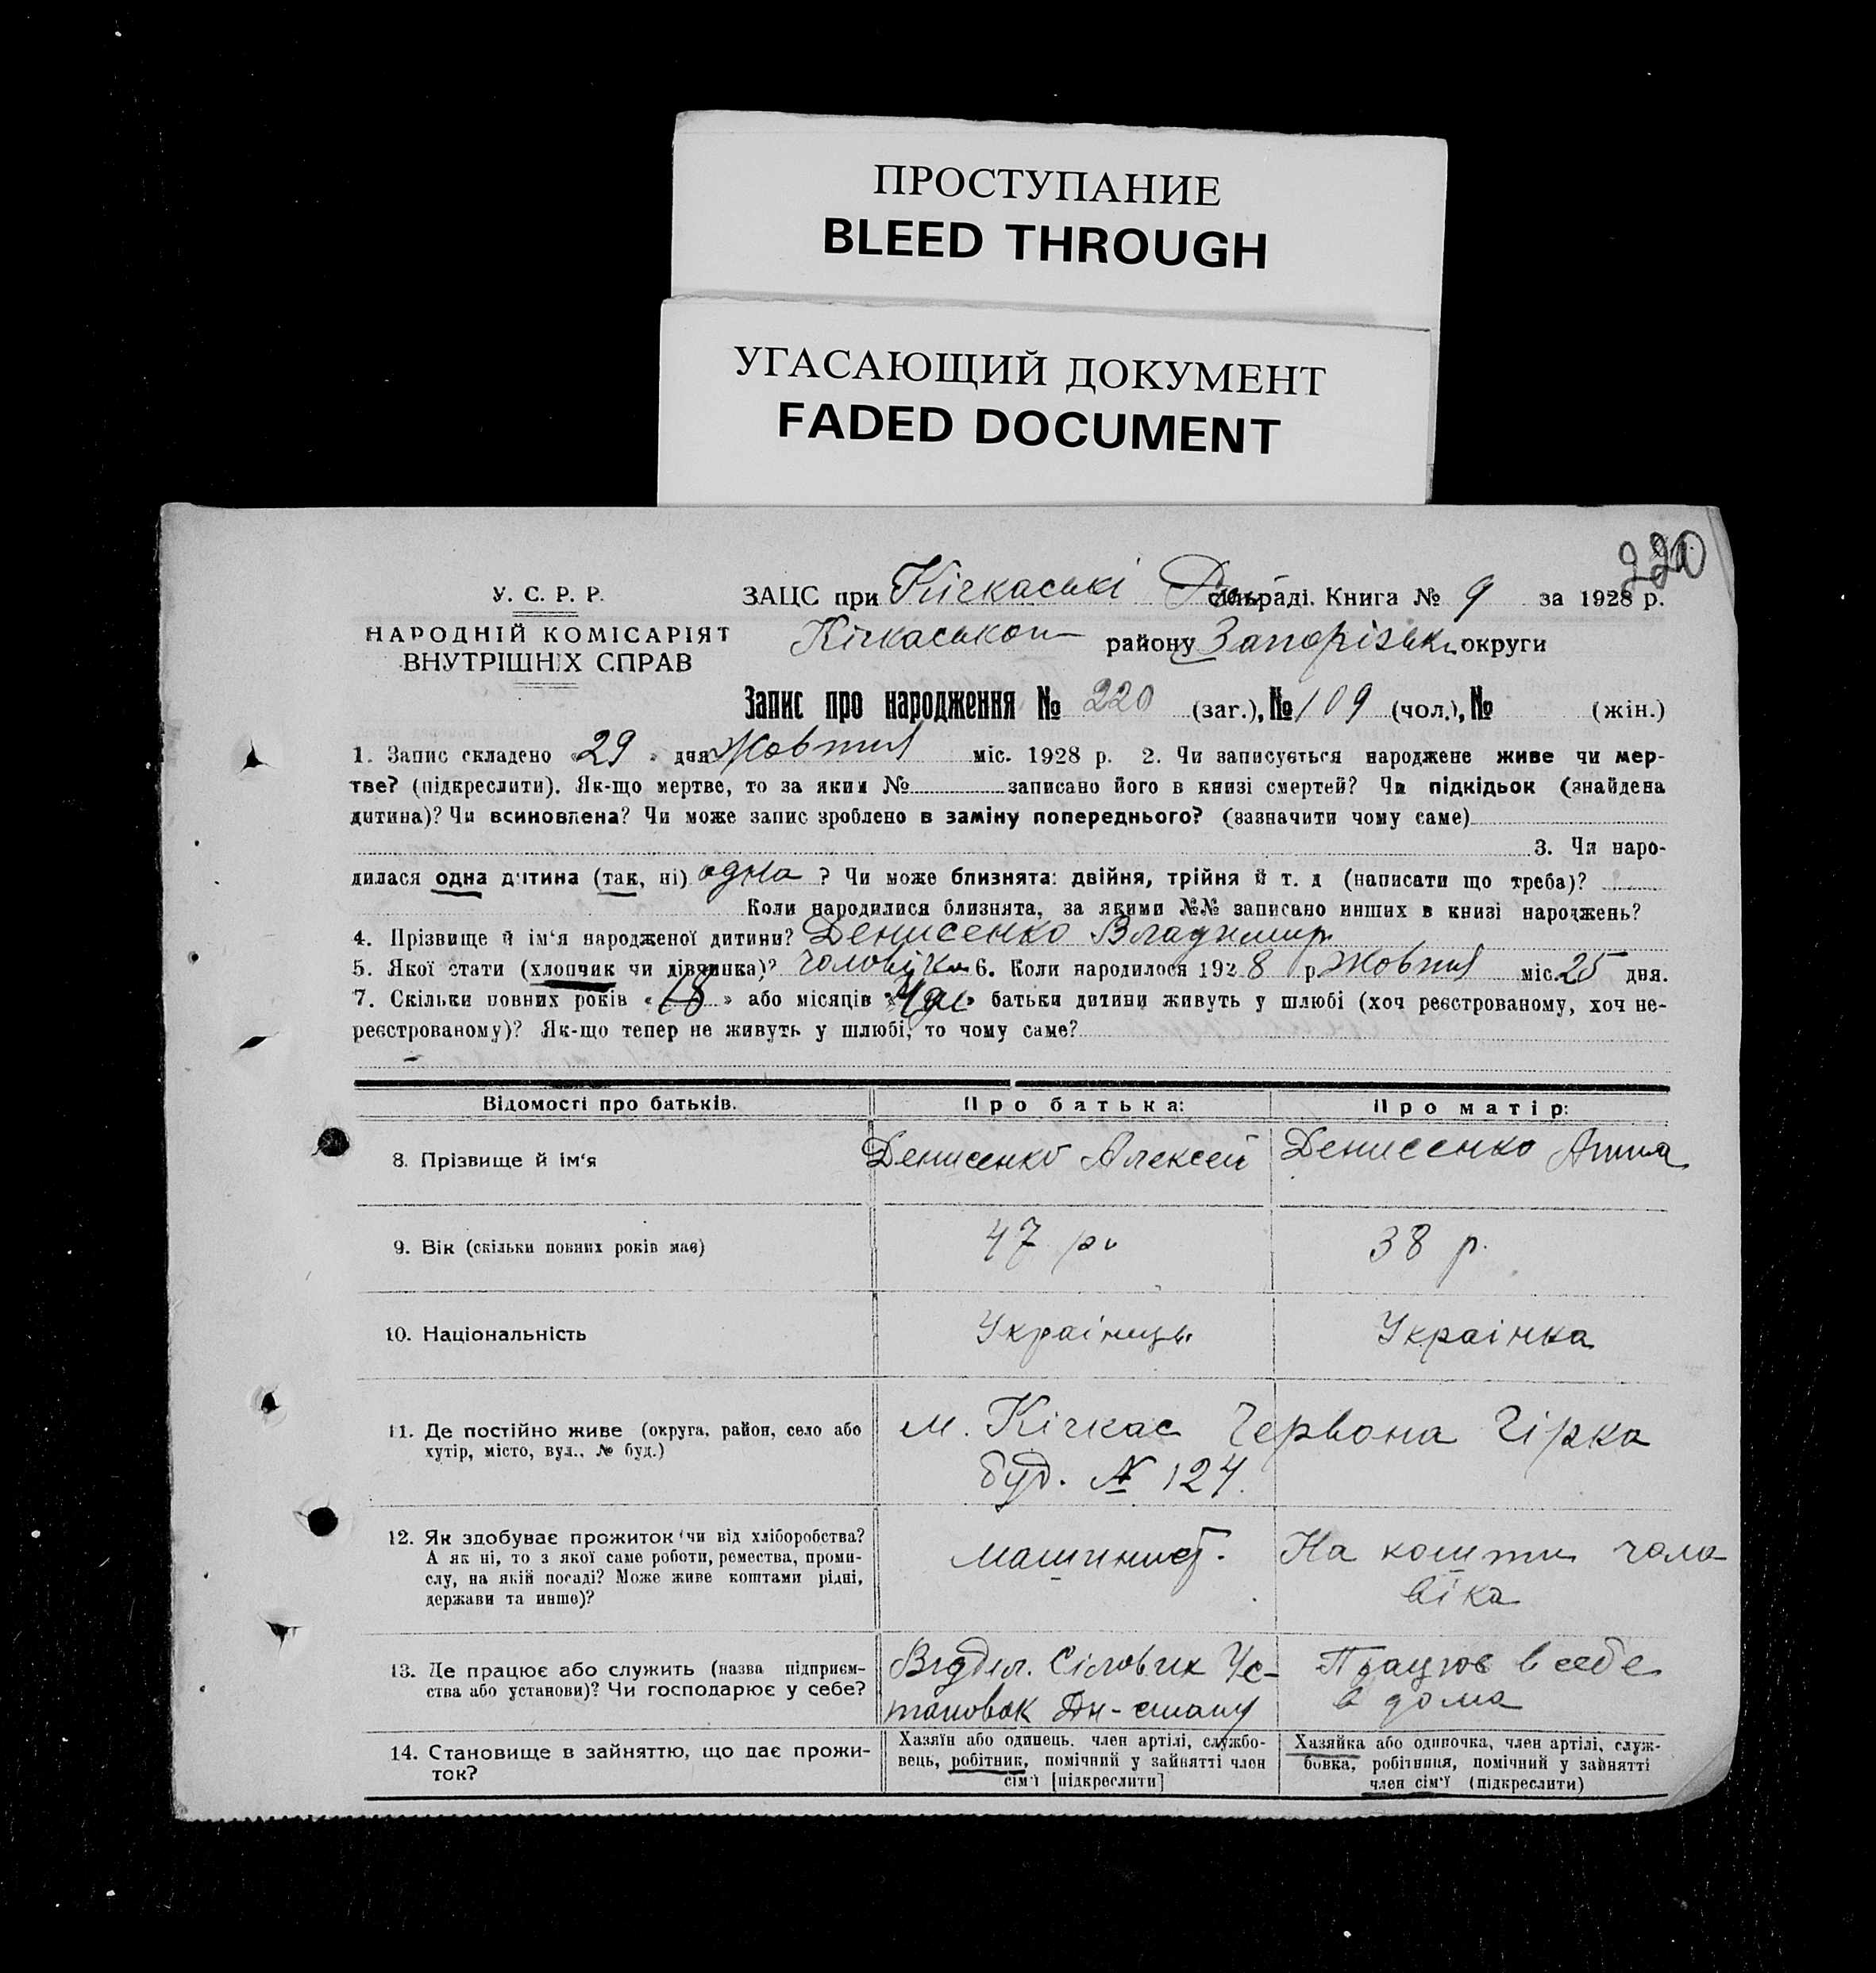 ПРОСТУПАНИЕ
BLEED THROUGH
УГАСАЮЩИЙ ДОКУМЕНТ
FADED DOCUMENT
220
У. С. Р. Р.
НАРОДНІЙ КОМІСАРІЯТ
ВНУТРІШНІХ СПРАВ
ЗАЦС при Кічкаські раді. Книга № 9 за 1928 р.
Кічкаської району Запорізьк. округи
Запис про народження № 220 (заг.), № 109 (чол.), № (жін.)
1. Запис складено «29» дня Жовтня міс. 1928 р. 2. Чи записується народжене живе чи мер-
тве? (підкреслити). Як-що мертве, то за яким № записано його в книзі смертей? Чи підкідьок (знайдена
дитина)? Чи всиновлена? Чи може запис зроблено в заміну попереднього? (зазначити чому саме)
3. Чи наро-
дилася одна дитина (так, ні) одна ? Чи може близнята: двійня, трійня й т. д (написати що треба)?
Коли народилися близнята, за якими №№ записано инших в книзі народжень?
4. Прізвище й ім‘я народженої дитини? Денисенко Владимир
5. Якої стати (хлопчик чи дівчинка)? чоловіка 6. Коли народилося 1928 р Жовтня міс. 25 дня.
7. Скільки повних років «18» або місяців « » батьки дитини живуть у шлюбі (хоч реєстрованому, хоч не-
реєстрованому)? Як-що тепер не живуть у шлюбі, то чому саме?
Відомості про батьків. Про батька: Про матір:
8. Прізвище й ім‘я Денисенко Алексей Денисенко Анна
9. Вік (скільки повних років має) 47 38 р.
10. Національність Українць Українка
11. Де постійно живе (округа, район, село або
хутір, місто, вул., № буд.)
м. Кічкас Червона Гірка
буд. № 124.
12. Як здобуває прожиток (чи від хліборобства?
А як ні, то з якої саме роботи, ремества, проми-
слу, на якій посаді? Може живе коштами рідні,
держави та инше)?
машинист. На кошти чола
віка
13. Де працює або служить (назва підприєм-
ства або установи)? Чи господарює у себе?
Відділ. Сіловик Ус-
тановок Дн-стану
Працює в себе
в дома
14. Становище в зайняттю, що дає прожи-
ток?
Хазяїн або одинець, член артілі, службо-
вець, робітник, помічний у зайнятті член
сім‘ї [підкреслити]
Хазяйка або одиночка, член артілі, служ-
бовка, робітниця, помічний у зайнятті
член сім‘ї (підкреслити)